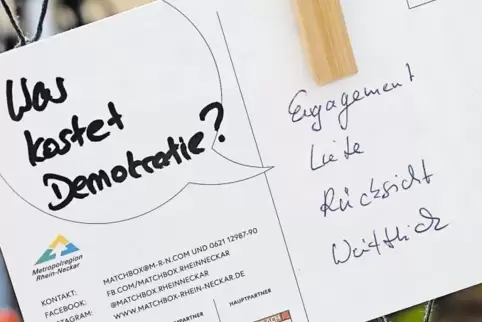 Was
kostet
Demokratie?
Engagement
Liebe
Rücksicht
Weitblick
Metropolregion
Rhein-Neckar
KONTAKT: MATCHBOX@M-R-N.COM UND 0621 12987-90
FACEBOOK: FB.COM/MATCHBOX.RHEINNECKAR
@MATCHBOX.RHEINNECKAR
WWW.MATCHBOX-RHEIN-NECKAR.DE
HAUPTPARTNER